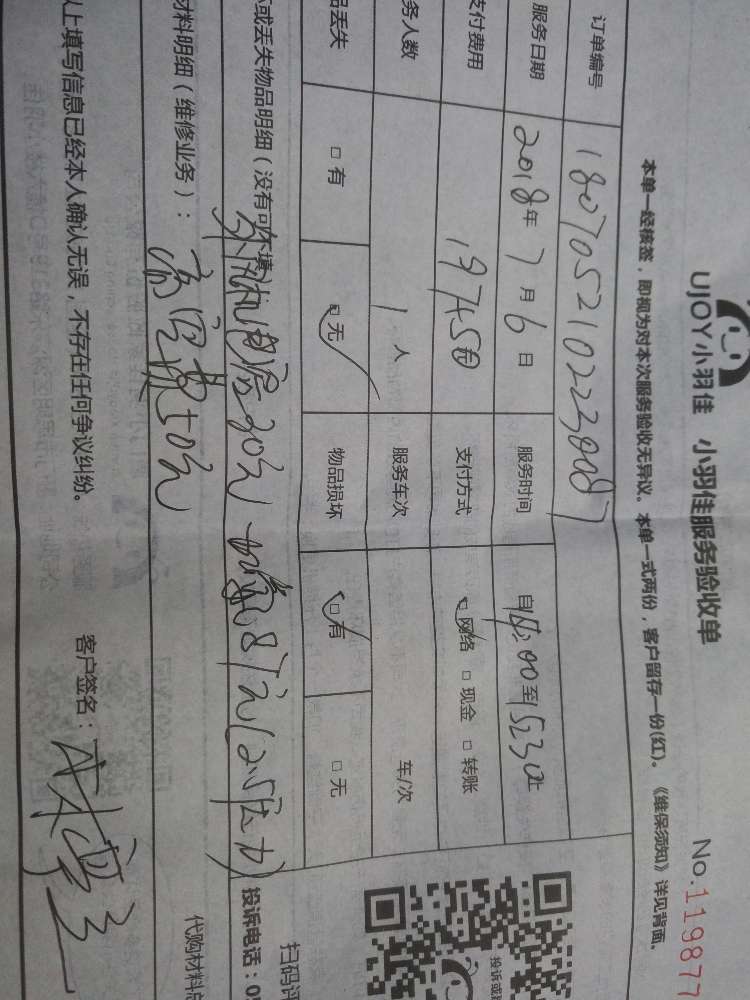 UJOY小羽佳 小羽佳服务验收单
No.119877
本单一经核签，即视为对本次服务验收无异议。本单一式两份，客户留存一份(红)。《维保须知》详见背面。
订单编号 1807052102230087
服务日期 2018年7月6日 服务时间 自14:00至15:30止
支付费用 197.4500 支付方式 □网络 □现金 □转账
务人数 1人 服务车次 车/次
品丢失 □有 □无 物品损坏 □有 □无
或丢失物品明细（没有可不填）：
外风机电容30元 加氟87元(2.5压力)
材料明细（维修业务）：高空费50元
以上填写信息已经本人确认无误，不存在任何争议纠纷。
客户签名：
扫码评
投诉电话：05
代购材料总
投诉或